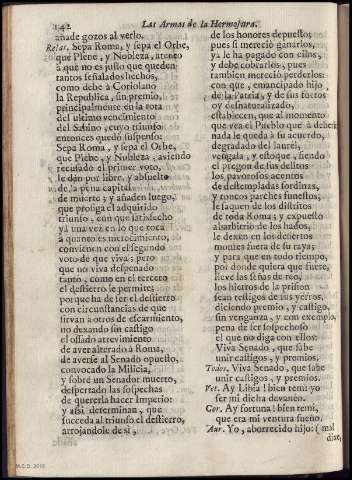 142
Las Armas de la Hermosura.
añade gozos al verlo.
Relat. Sepa Roma, y sepa el Orbe,
que Plebe, y Nobleza, atento
à que no es justo que queden
tantos señalados hechos,
como debe à Coriolano
la Republica, sin premio,
principalmente en la rota
del ultimo vencimiento
del Sabino, cuyo triunfo
entonces quedò suspenso:
Sepa Roma, y sepa el Orbe,
que Plebe, y Nobleza, aviendo
recusado el primer voto,
le dàn por libre, y absuelto
de la pena capital
de muerte; y añaden luego,
que prosiga el adquirido
triunfo, con que satisfecho
yà una vez en lo que toca
à quanto es nuestro,
convienen con el segundo
voto de que viva; pero
que no viva despenado
tanto, como en el tercero
el destierro le permite;
porque ha de ser el destierro
con circunstancias de que
sirvan à otros de escarmiento,
no dexando sin castigo
el ossado atrevimiento
de aver alterado à Roma,
de averse al Senado opuesto,
convocado la Milicia,
y sobre un Senador muerto,
despertado las sospechas
de quererla hacer Imperio:
y assi determinan, que
succeda al triunfo el destierro,
arrojandole de sì,
de los honores depuesto;
pues si mereciò ganarlos,
yà le ha pagado con ellos,
y debe cobrarlos, pues
tambien mereciò perderlos:
con que, emancipado hijo
de la Patria, y de sus fueros
oy desnaturalizado,
establecen, que al momento
que vea el Pueblo que à
nada le queda à su acuerdo,
degradado del laurèl,
vengala, y estoque, siendo
el pregon de sus delitos
los pavorosos acentos
de destempladas sordinas,
y roncos parches funestos,
le saquen de los distritos
de toda Roma; y expuesto
al arbitrio de los hados,
le dexen en los desiertos
montes fuera de su raya;
y para que en todo tiempo,
por donde quiera que fuere,
lleve las señas de reo,
los hierros de la prision
sean testigos de sus yerros,
diciendo premio, y castigo,
sin venganza, y con exemplo,
pena de ser sospechoso
el que no diga con ellos:
Viva Senado, que sabe
unir castigos, y premios.
Todos. Viva Senado, que sabe
unir castigos, y premios.
Vet. Ay Libia! bien temì yo
ser mi dicha devanèo.
Cor. Ay fortuna! bien temì,
que era mi ventura sueño.
Aur. Yo, aborrecido hijo: (mal
dixe,